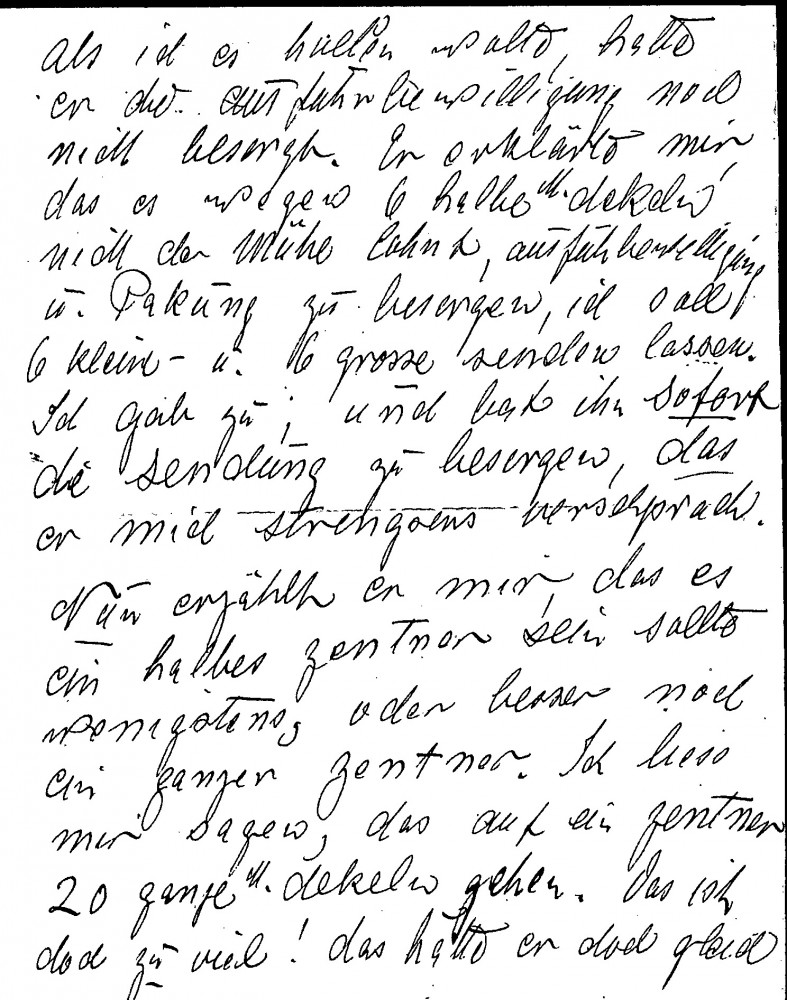 als ich es holen wollte, hatte
er die ausfuhrbewilligung noch
nicht besorgt. Er erklärte mir,
das es wegen 6 halbe M. dekeln
nicht der Mühe lohnt, ausfuhrbewilligung
u. Pakung zu besorgen, ich soll
6 kleine - u. 6 grosse senden lassen.
Ich gab zu; und bat ihn sofort
die sendung zu besorgen, das
er mich strengstens verschprach.
Nun erzählt er mir, das es
ein halbes zentner sein sollte
wenigstens, oder besser noch
ein ganzer zentner. Ich liess
mir sagen, das auf ein zentner
20 ganze M. dekeln gehen. Das ist
doch zu viel! das hätte er doch gleich